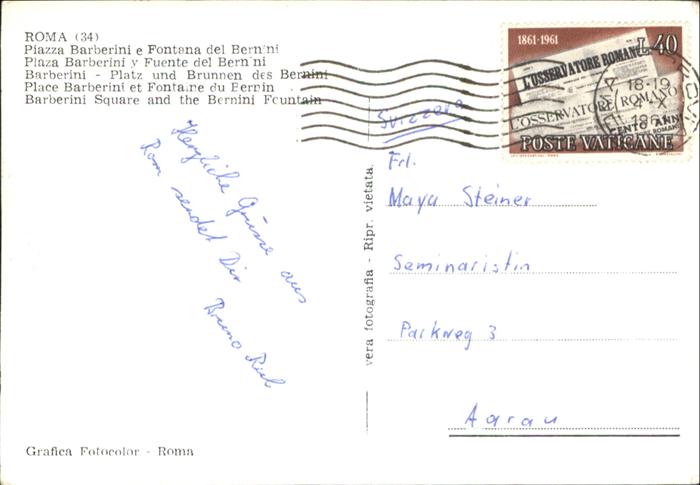 ROMA (34)
Piazza Barberini e Fontana del Bernini
Plaza Barberini y Fuente del Bernini
Barberini - Platz und Brunnen des Bernini
Place Barberini et Fontaine du Bernin
Barberini Square and the Bernini Fountain
1861-1961
L.40
L'OSSERVATORE ROMANO
L'OSSERVATORE ROMANO
CENTO ANNI
POSTE VATICANE
18-19
X
Svizzera
Herzliche Grüsse aus
Rom sendet Dir
Bruno
vera fotografia - Ripr. vietata
Frl.
Maya Steiner
Seminaristin
Parkweg 3
Aarau
Grafica Fotocolor - Roma